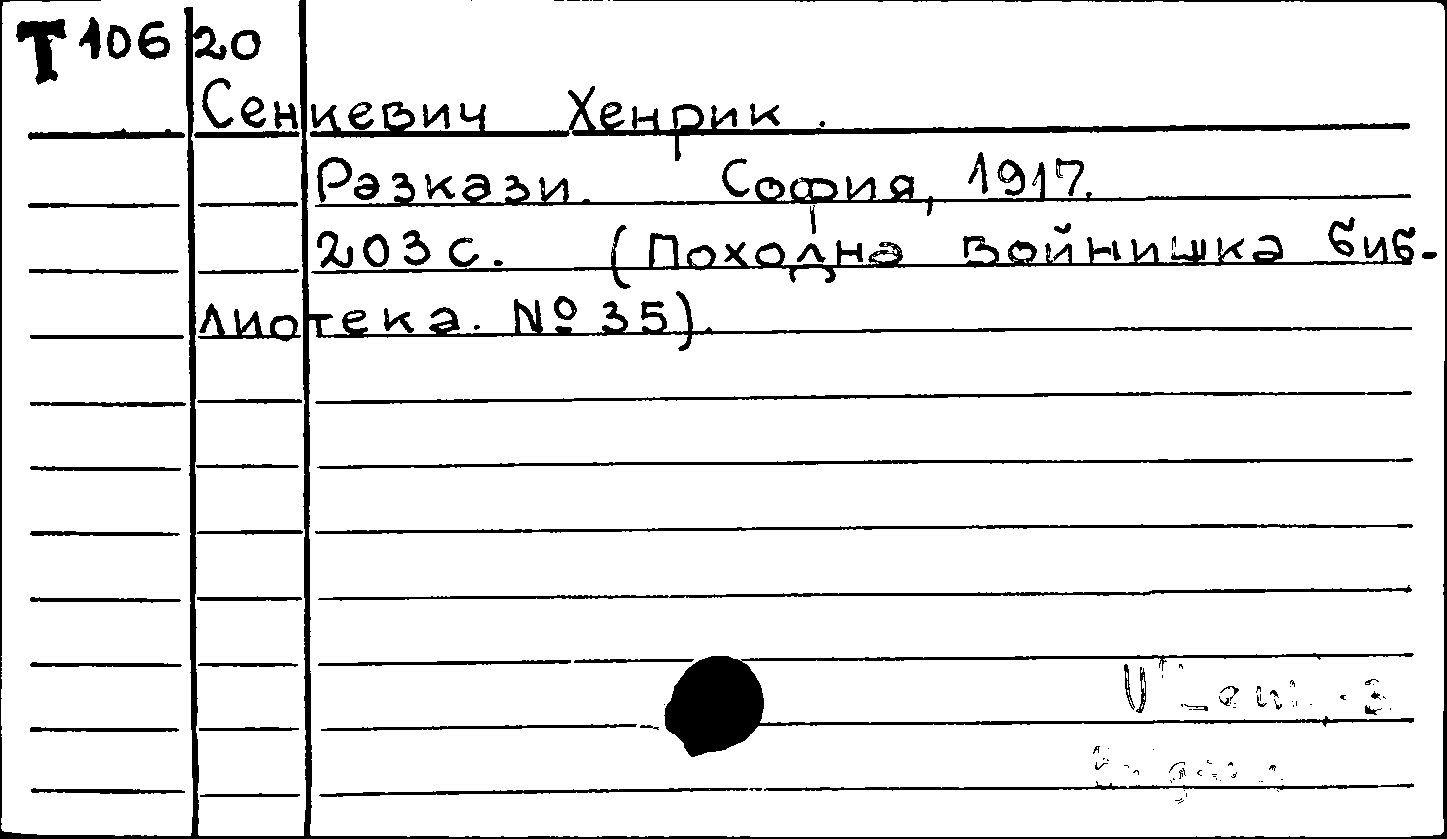 Т 106 20
Сенкевич Хенрик.
Разкази. София, 1917.
203 с. (Походна войнишка биб-
лиотека. № 35).